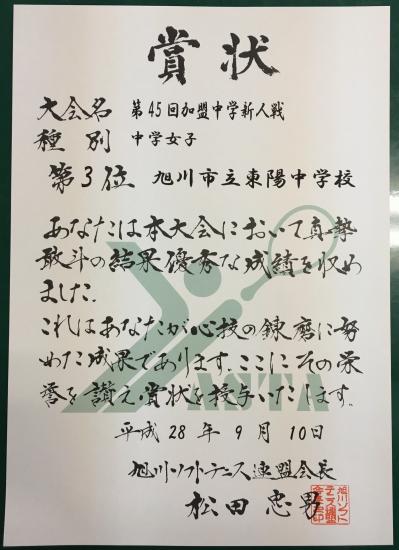 賞状
大会名 第45回加盟中学新人戦
種別 中学女子
第3位 旭川市立東陽中学校
あなたは本大会において真摯
敢斗の結果優秀な成績を収め
ました.
これはあなたが心技の錬磨に努
めた成果であります.ここにその栄
誉を讃え賞状を授与いたします.
平成28年9月10日
旭川ソフトテニス連盟会長
松田忠男
ASTA